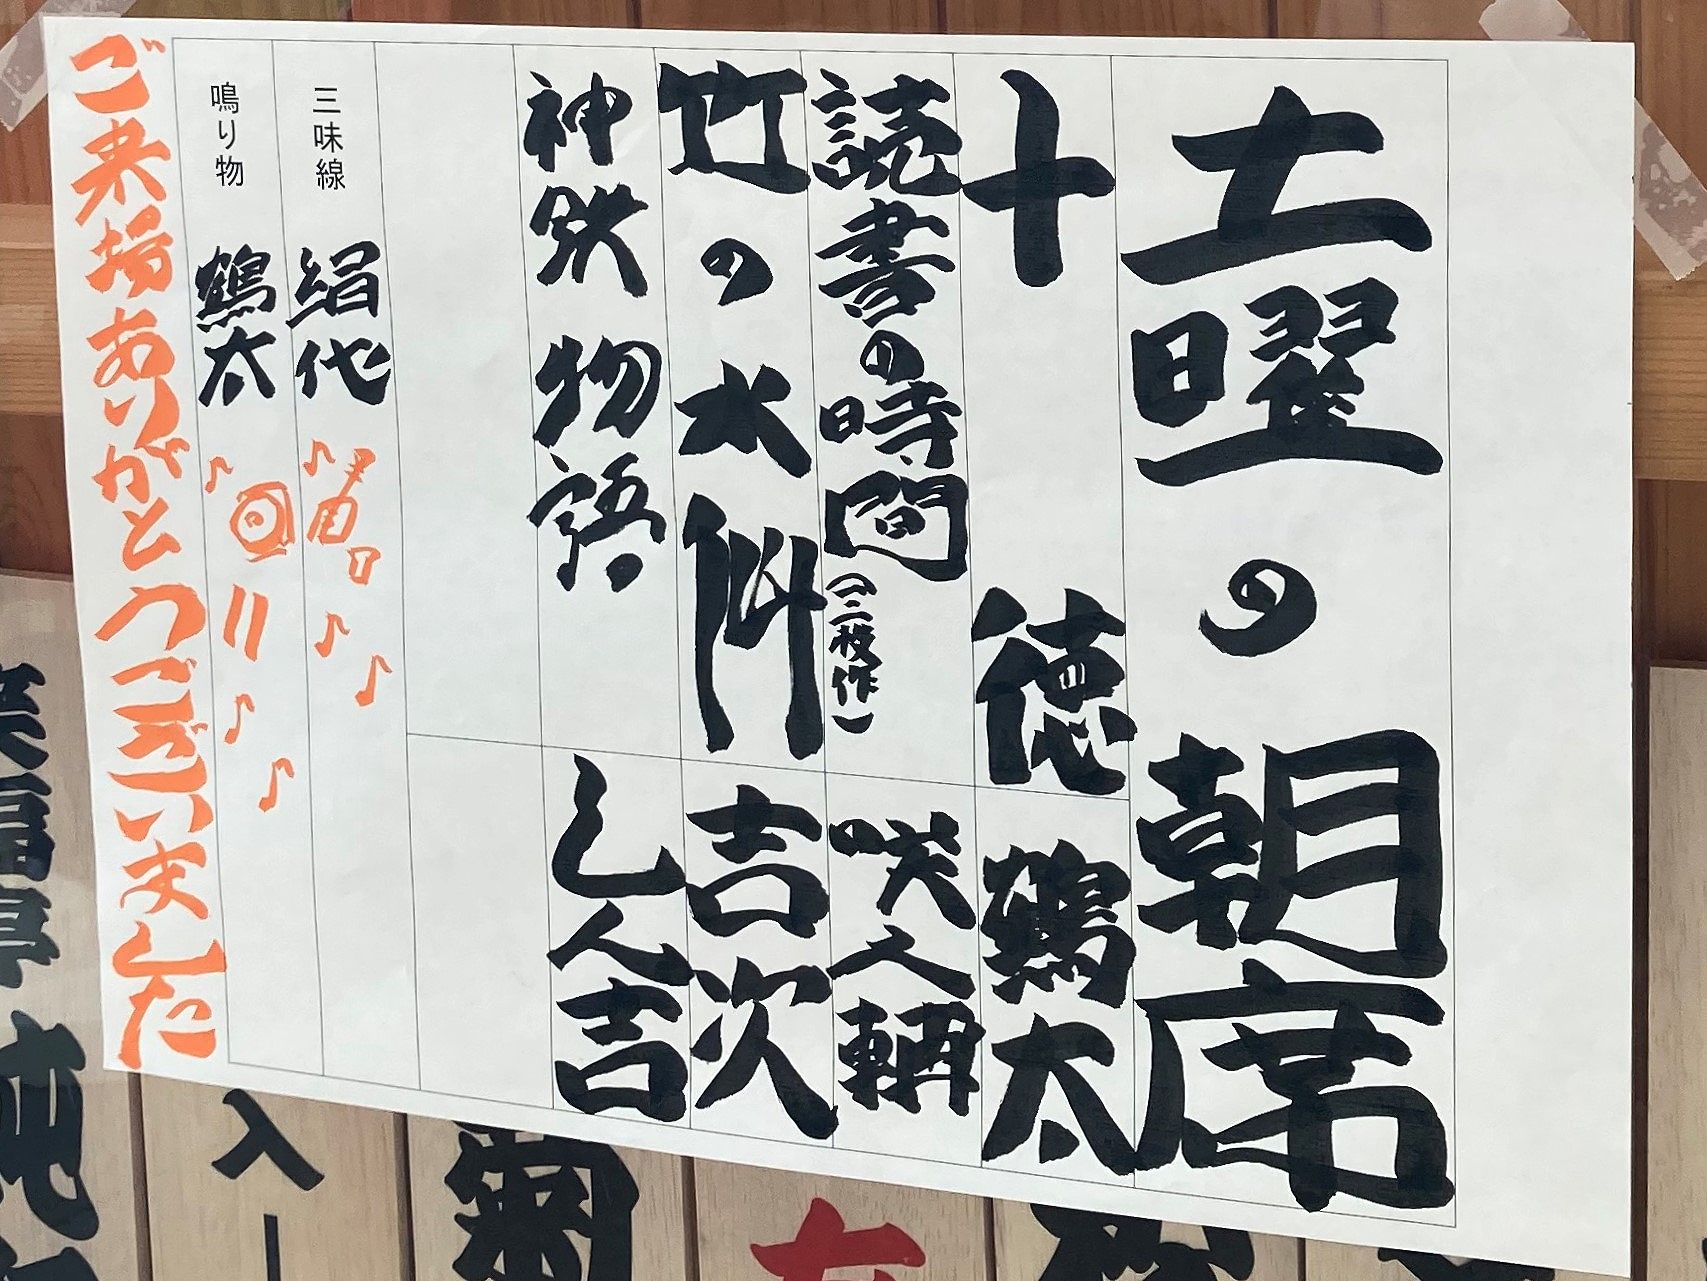 土曜の朝席
十徳 鶴太
読書の時間（三枝作） 咲之輔
竹の水仙 吉次
神鉄物語 しん吉
三味線 絹代
鳴り物 鶴太
ご来場ありがとうございました
入
菊